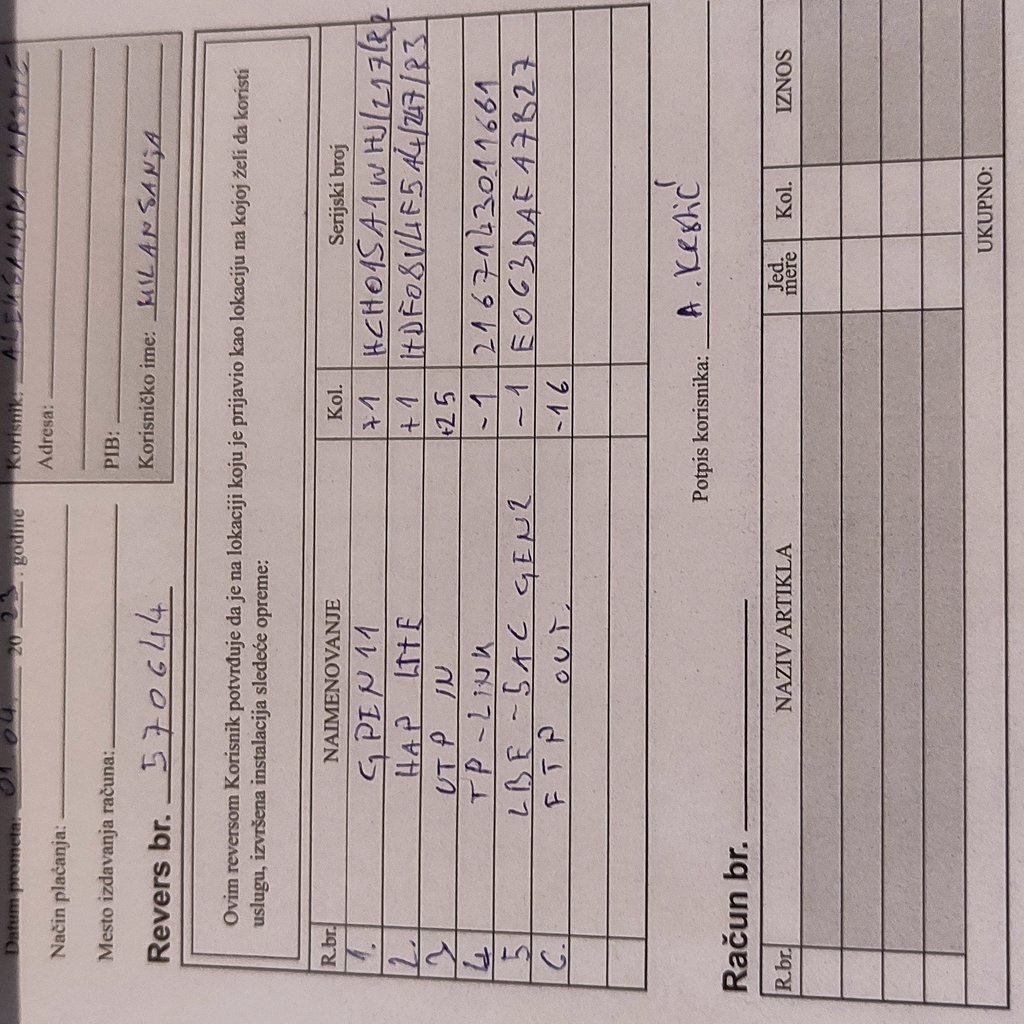 Datum prometa: 01 04. 20 23. godine
Način plaćanja:
Mesto izdavanja računa:
Korisnik: ALEKSANDRA KRSTIĆ
Adresa:
PIB:
Korisničko ime: MILANSANJA
Revers br. 570644
Ovim reversom Korisnik potvrđuje da je na lokaciji koju je prijavio kao lokaciju na kojoj želi da koristi
uslugu, izvršena instalacija sledeće opreme:
R.br. NAIMENOVANJE Kol. Serijski broj
1. GPEN11 +1 HCH015A1WHJ/217/R2
2. HAP LITE +1 HDF08V4E5A4/247/R3
3 UTP IN +25
4 TP-LINK -1 2167143011661
5 LBE-5AC GEN2 -1 E063DAEA7B27
6. FTP OUT. -16
Potpis korisnika: A. Krstić
Račun br.
R.br. NAZIV ARTIKLA Jed. mere Kol. IZNOS
UKUPNO: